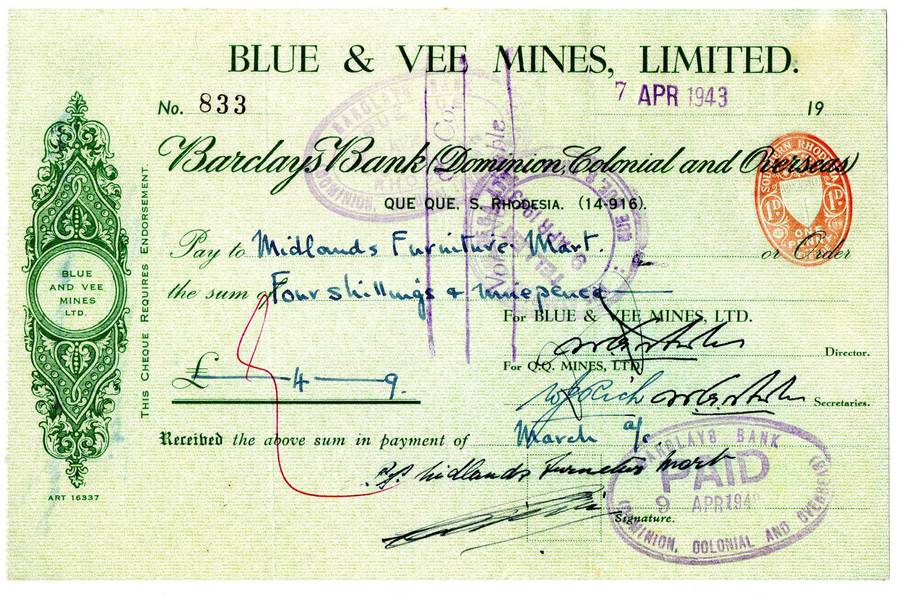 BLUE & VEE MINES, LIMITED.
No. 833
7 APR 1943
19
Barclays Bank (Dominion, Colonial and Overseas)
QUE QUE, S. RHODESIA. (14-916).
Pay to Midlands Furniture Mart. or Order
the sum of Four shillings & ninepence
For BLUE & VEE MINES, LTD.
Director.
For Q.Q. MINES, LTD.
£ 4 9.
Secretaries.
Received the above sum in payment of March a/c.
Midlands Furnetur Mart
Signature.
BLUE
AND VEE
MINES
LTD.
THIS CHEQUE REQUIRES ENDORSEMENT.
ART 16337
& Co.
SOUTHERN RHODESIA
1D 1D
ONE
PENNY
BARCLAYS BANK
PAID
9 APR 194
(DOMINION, COLONIAL AND OVERSEAS)
BARCLAYS BANK
QUE QUE
(DOMINION
TELLER
9 APR 1943